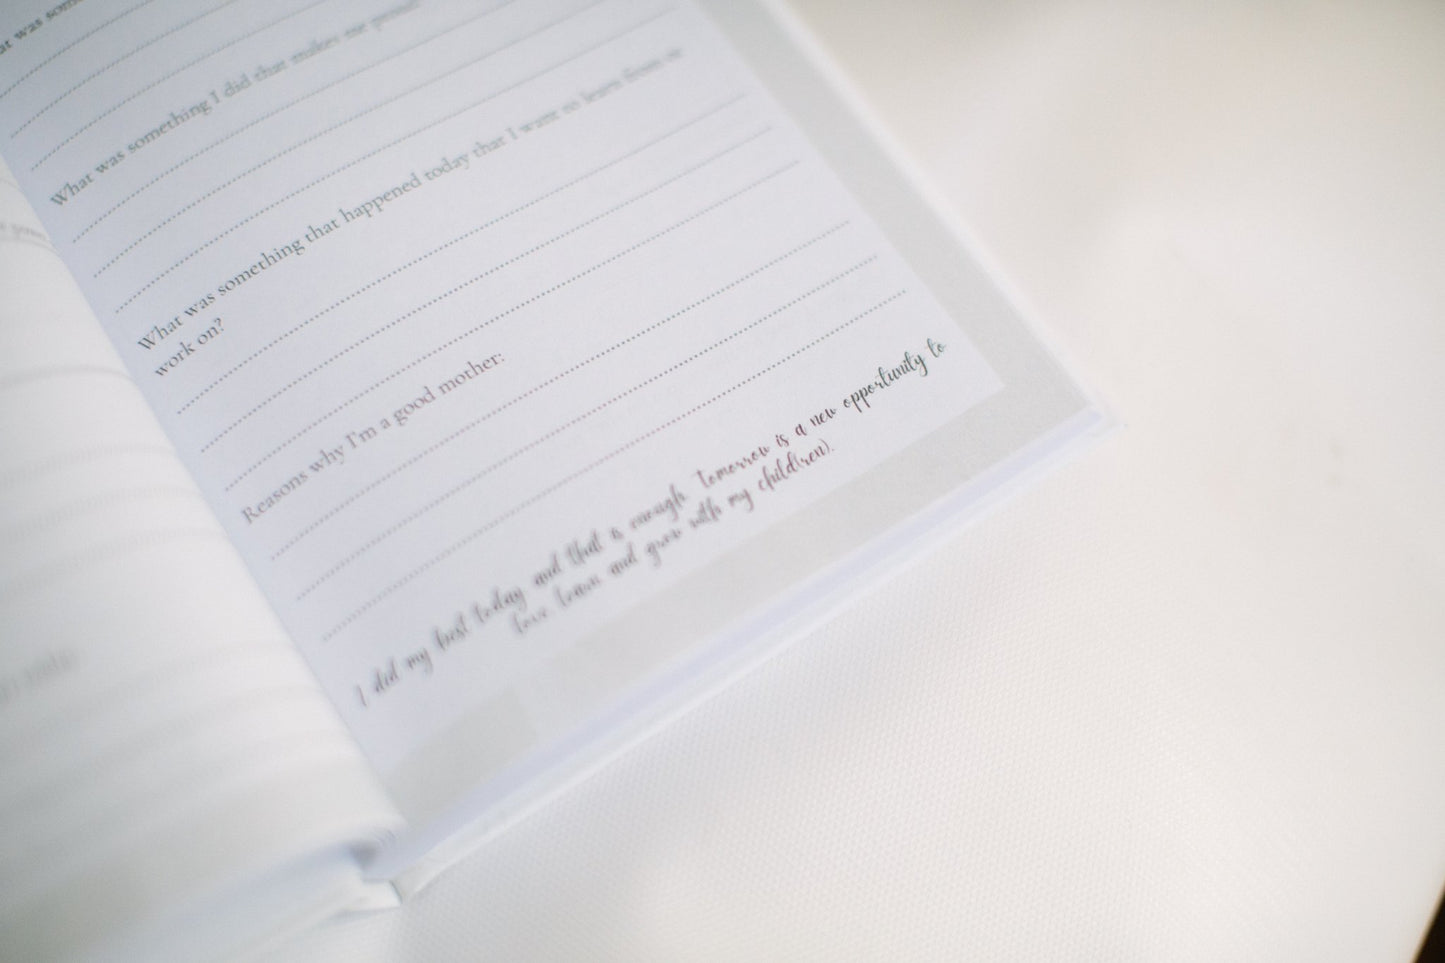 at was som
What was something I did that makes me proud?
What was something that happened today that I want to learn from or
work on?
Reasons why I'm a good mother:
I did my best today and that is enough, tomorrow is a new opportunity to
love, learn and grow with my child(ren).